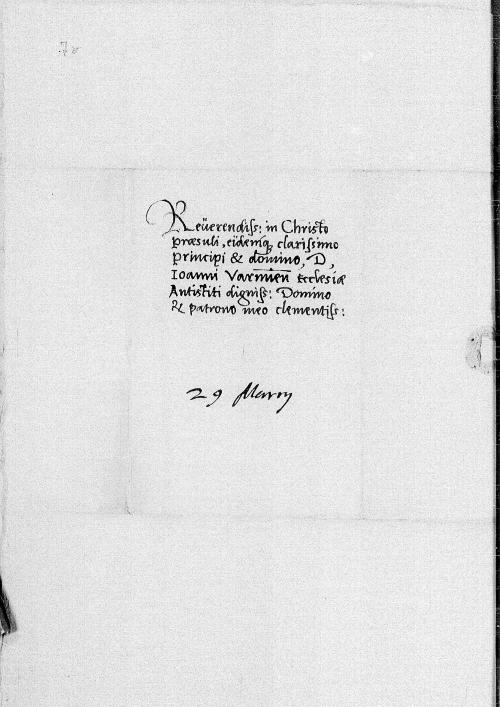 Reuerendiss: in Christo
præsuli, eidemq clarissimo
principi & domino, D,
Ioanni Varmien Ecclesiæ
Antistiti digniss: Domino
& patrono meo clementiss:
29 Marty